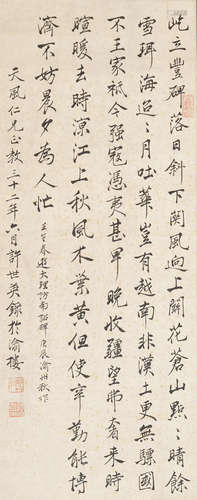 立豐碑落日斜下關風向上關花蒼山點點晴餘
雪珥海迢迢月吐華豈有越南非漢土更無驃國
不王家祇今強寇憑夷甚早晚收疆望弗奢來時
暄暖去時涼江上秋風木葉黃但使辛勤能博
濟不妨晨夕為人忙
春遊大理訪南詔碑 庚辰渝州秋作
天風仁兄正教三十二年六月許世英錄於渝樓